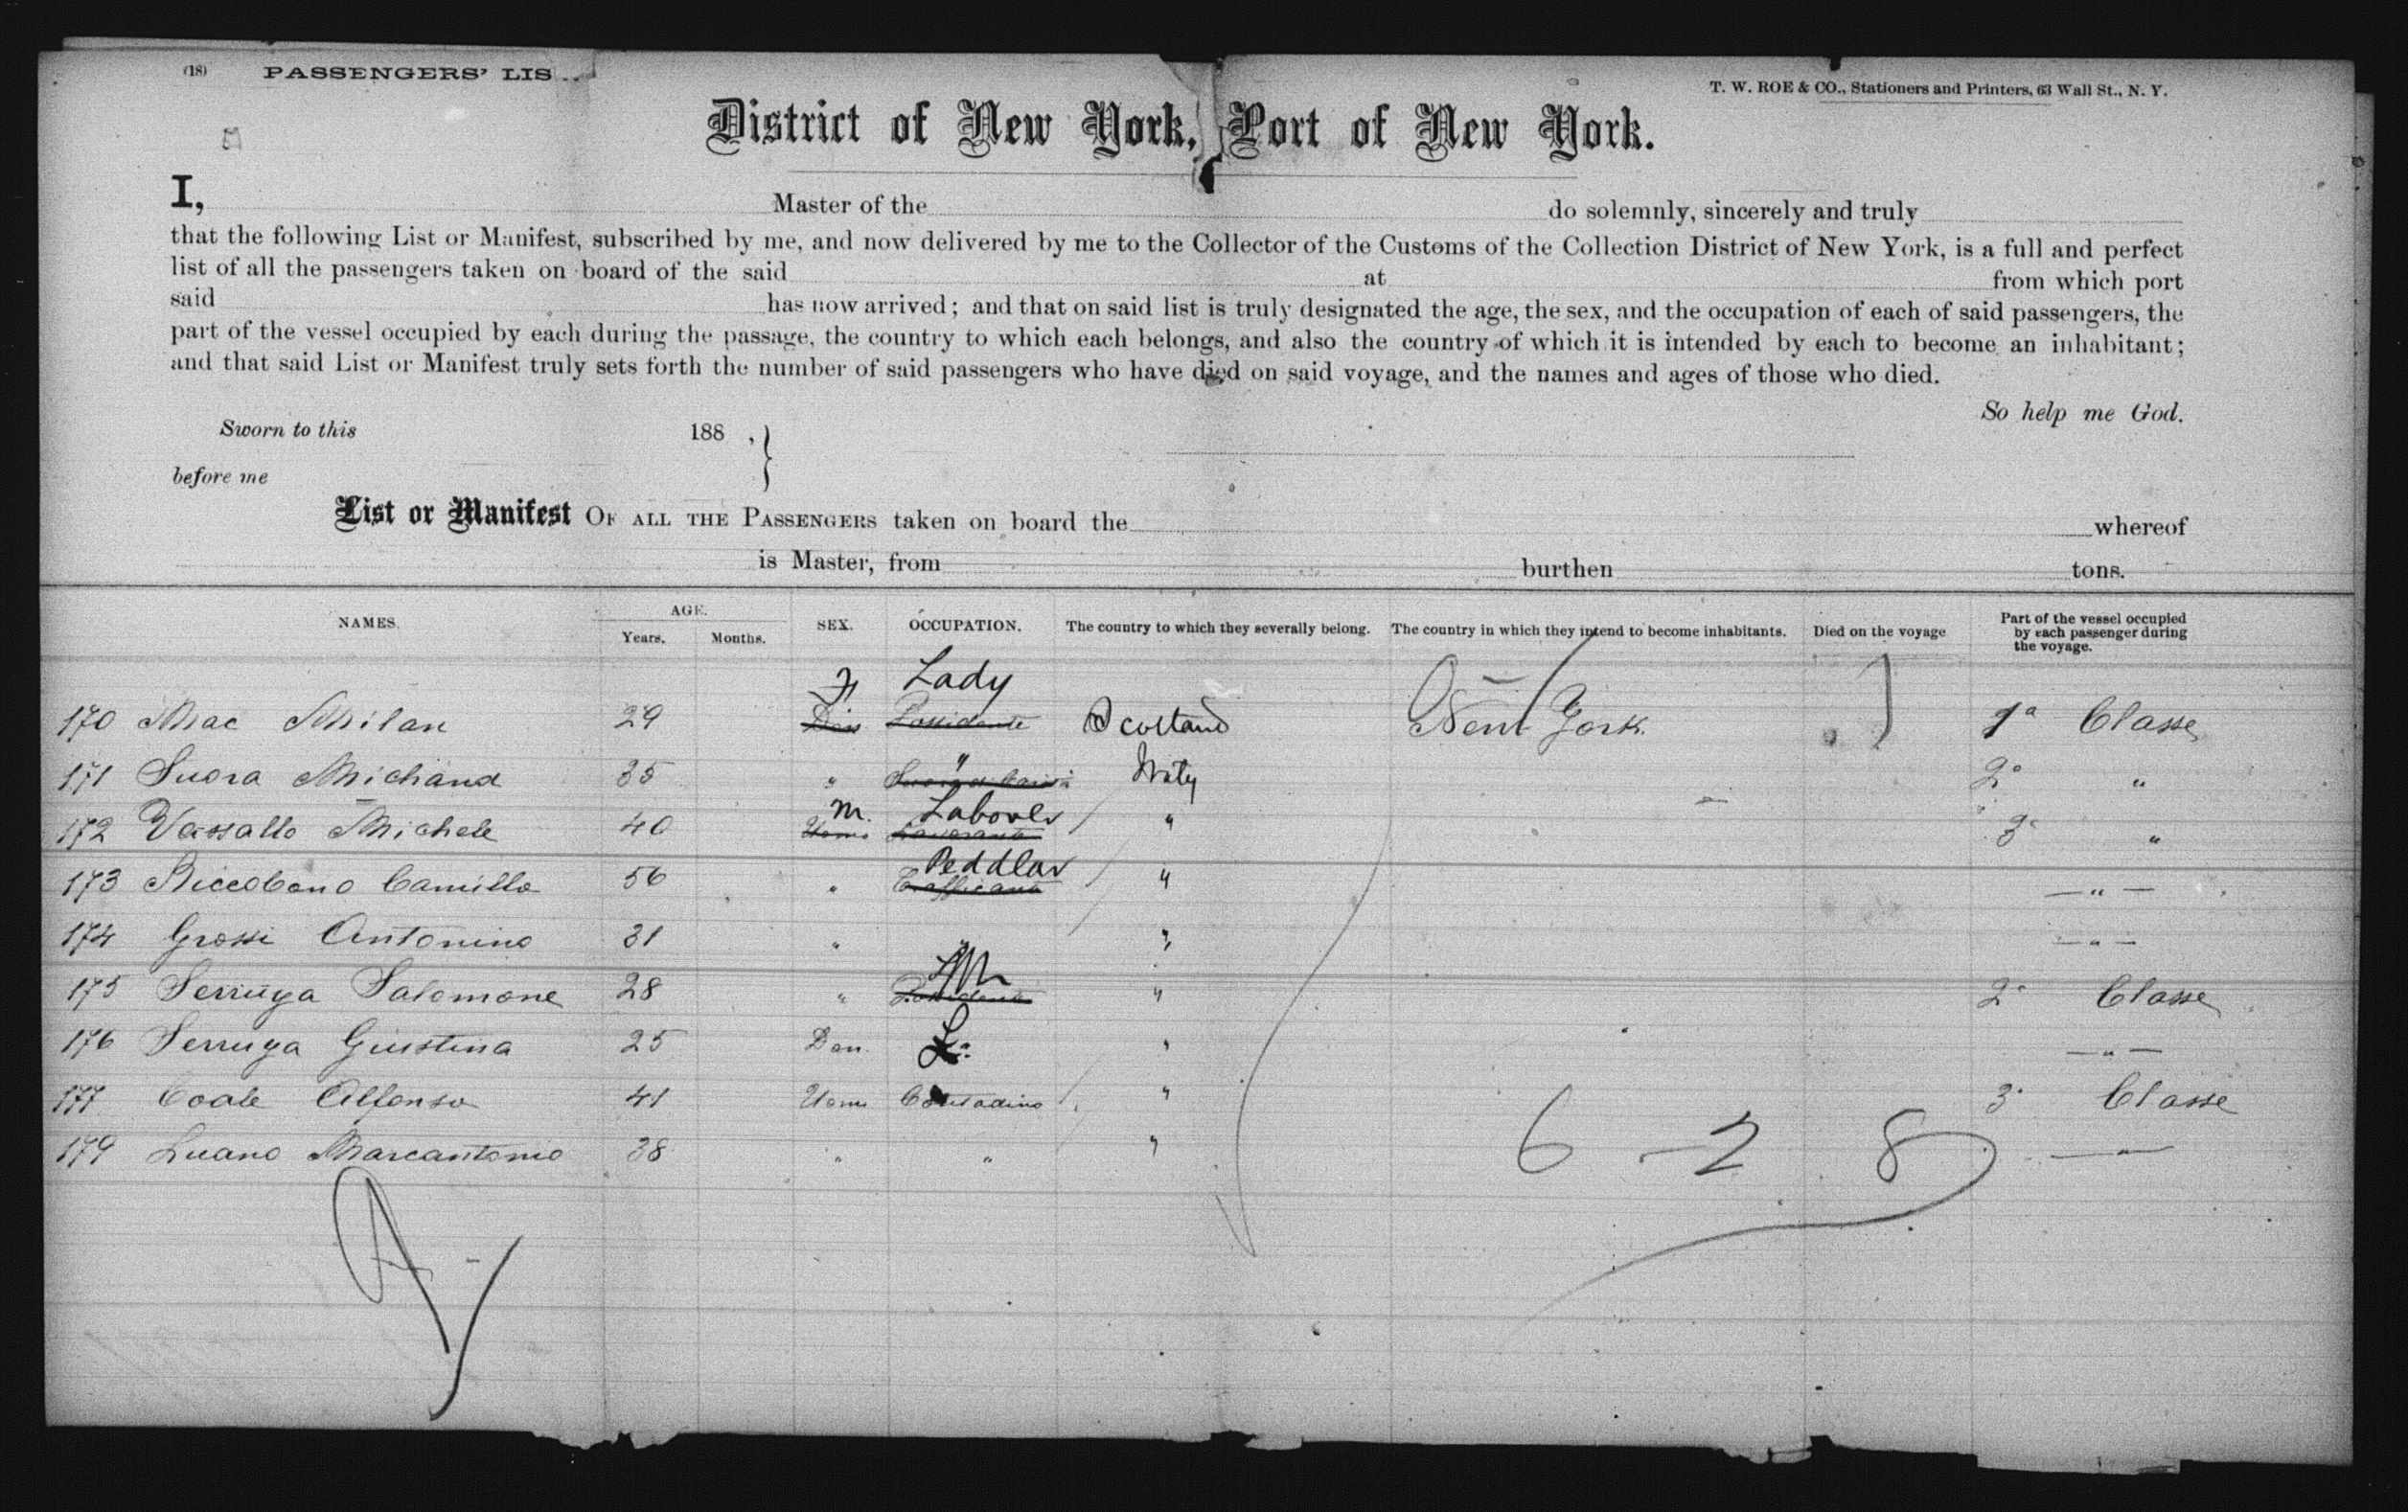 (18) PASSENGERS' LIS
T. W. ROE & CO., Stationers and Printers, 63 Wall St., N. Y.
District of New York, Port of New York.
I, Master of the do solemnly, sincerely and truly
that the following List or Manifest, subscribed by me, and now delivered by me to the Collector of the Customs of the Collection District of New York, is a full and perfect
list of all the passengers taken on board of the said at from which port
said has now arrived; and that on said list is truly designated the age, the sex, and the occupation of each of said passengers, the
part of the vessel occupied by each during the passage, the country to which each belongs, and also the country of which it is intended by each to become an inhabitant;
and that said List or Manifest truly sets forth the number of said passengers who have died on said voyage, and the names and ages of those who died.
So help me God.
Sworn to this 188 ,
before me
List or Manifest OF ALL THE PASSENGERS taken on board the whereof
is Master, from burthen tons.
NAMES. AGE. Years. Months. SEX. OCCUPATION. The country to which they severally belong. The country in which they intend to become inhabitants. Died on the voyage Part of the vessel occupied by each passenger during the voyage.
F Lady
170 Mac Milan 29 Don Possidente Scotland New York 1a Classe
171 Suora Michand 35 " " Italy 2a "
m. Labourer
172 Vassallo Michele 40 Uomo Lavorante " 3a "
Peddlar
173 Riccobono Camillo 56 " Trafficante " — " —
174 Grossi Antonino 31 " " " — " —
175 Serruya Salomone 28 " Possidente " 2a Classe
176 Serruya Giustina 25 Don. " — " —
177 Coale Alfonso 41 Uomo Contadino " 3a Classe
179 Luano Marcantonio 38 " " " — " —
6 - 2 8